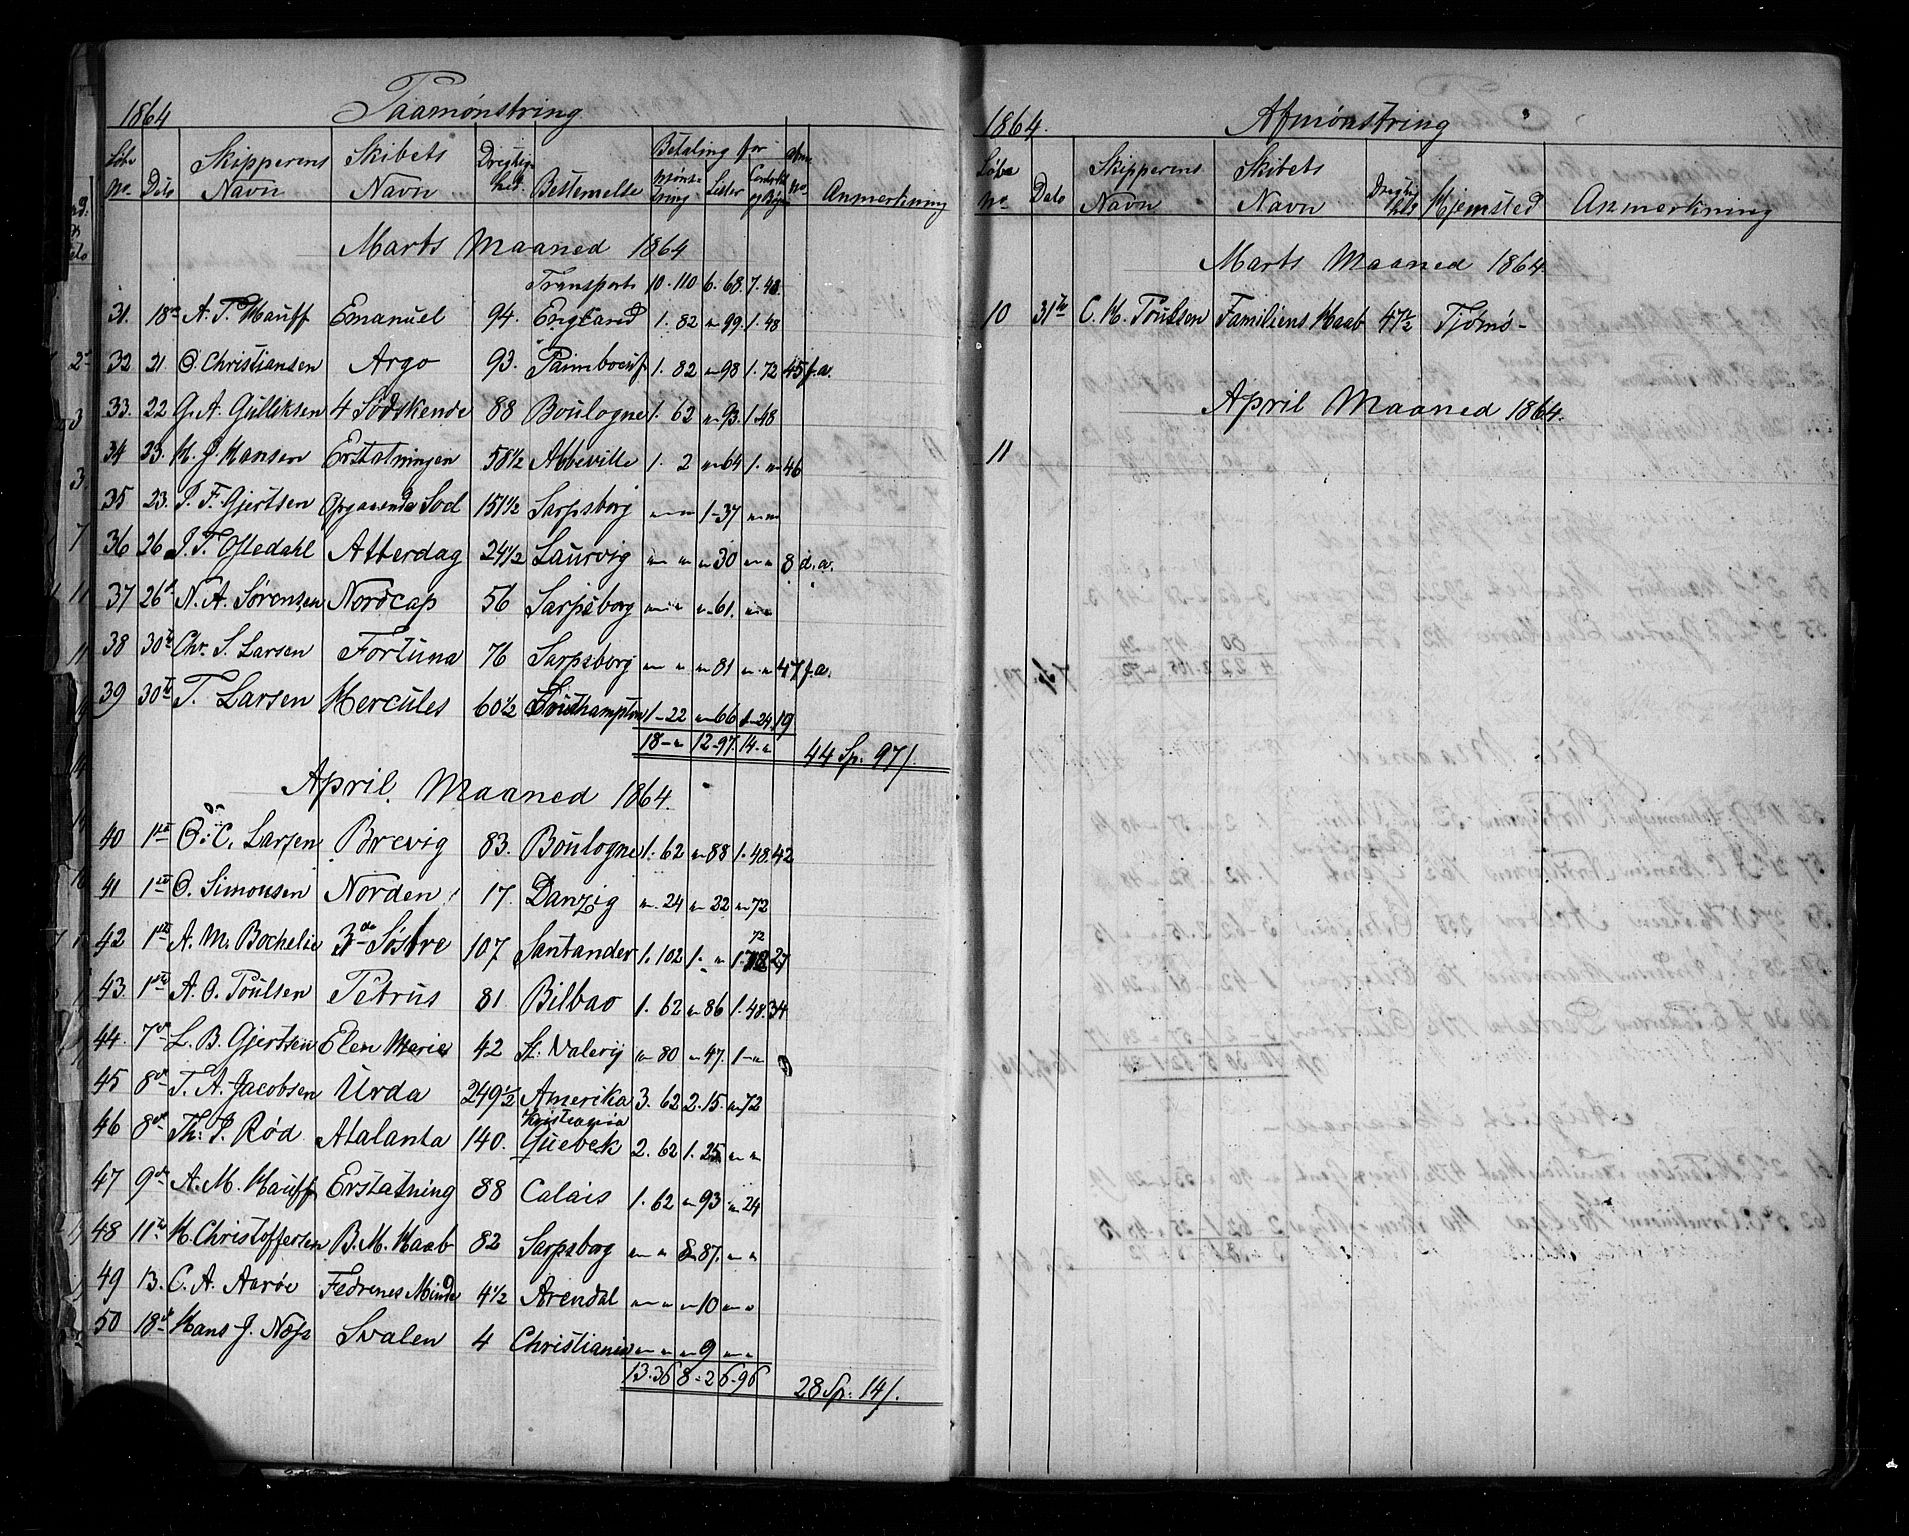 1864 Paamønstring
Løbe No. Dato Skipperens Navn Skibets Navn Drægtighed Bestemelse Betaling for Mønstring Lister No. Anmerkning
Marts Maaned 1864
Transport 10. 110 6. 68. 7. 48.
31. 18de A. T. Hauff Emanuel 94. England 1. 82 " 99. 1. 48
32 21. O. Christiansen Argo 93. Paimboeuf 1. 82 " 98 1. 72 45 f.a.
33. 22 G. A. Gulliksen 4 Sødskende 88 Boulogne 1. 62 " 93. 1. 48
34 23. H. J. Hansen Erstatningen 58 1/2 Abbeville 1. 2 " 64 1. " 46
35 23. P. F. Gjertsen Opgaaende Sol 151 1/2 Sarpsborg " " 1-37 " "
36 26 P. T. Ofledahl Atterdag 24 1/2 Laurvig " " " 30 " " 8 d.a.
37 26de N. A. Sørensen Nordcap 56 Sarpsborg " " " 61. " "
38 30te Chr. S. Larsen Fortuna 76 Sarpsborg " " " 81 " " 47 f.a.
39 30te T. Larsen Hercules 60 1/2 Southampton 1-22 " 66 1-24 19
18-" 12-97. 14-" 44 Sp: 97/.
April Maaned 1864.
40 1ste O. C. Larsen Brevig 83. Boulogne 1. 62 " 88 1. 48. 42
41 1ste O. Simonsen Norden 17. Danzig " 24 " 22 " 72
42 1ste A. M. Bochelie 3de Søstre 107 Santander 1. 102 1. " 1. 72 27
43. 1ste A. O. Poulsen Petrus 81. Bilbao 1. 62 " 86 1. 48. 34
44. 7de L. B. Gjertsen Elen Marie 42 St. Valery " 80 " 47. 1-" 9
45 8de T. A. Jacobsen Urda 249 1/2 Amerika 3. 62 2. 15. " 72
Kristiania
46 8de Th: P. Rød Atalanta 140. Quebek 2. 62 1. 25 " "
47 9de A. M. Hauff Erstatning 88 Calais 1. 62 " 93 " 24
48 11te H. Christoffersen B. M. Haab 82 Sarpsborg " " 87. " "
49 13. C. A. Aarøe Fedrenes Minde 4 1/2 Arendal " " " 10 " "
50 18de Hans J. Næss Svalen 4 Christiania " " " 9 " "
13. 36 8-2 6. 96 28 Sp: 14/.
1864. Afmønstring
Løbe No. Dato Skipperens Navn Skibets Navn Drægtighed Hjemsted Anmerkning
Marts Maaned 1864
10 31te C. H. Poulsen Familiens Haab 47 1/2 Tjømø-
April Maaned 1864.
11